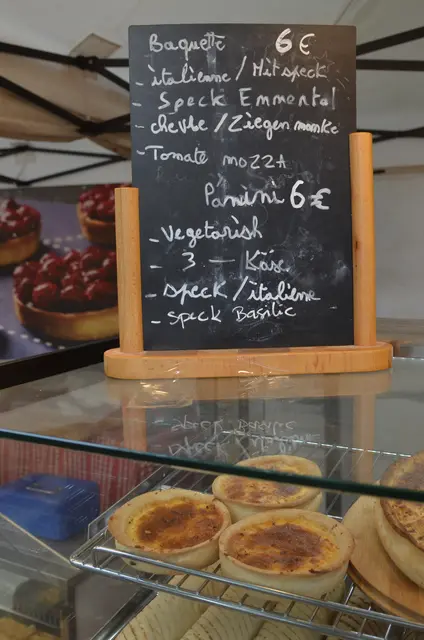 Baguette 6€
- italienne / Mit speck
- Speck Emmental
- chevre / Ziegen
- Tomate mozzA
Panini 6€
- vegetarish
- 3 — Käse
- speck / italienne
- speck Basilic